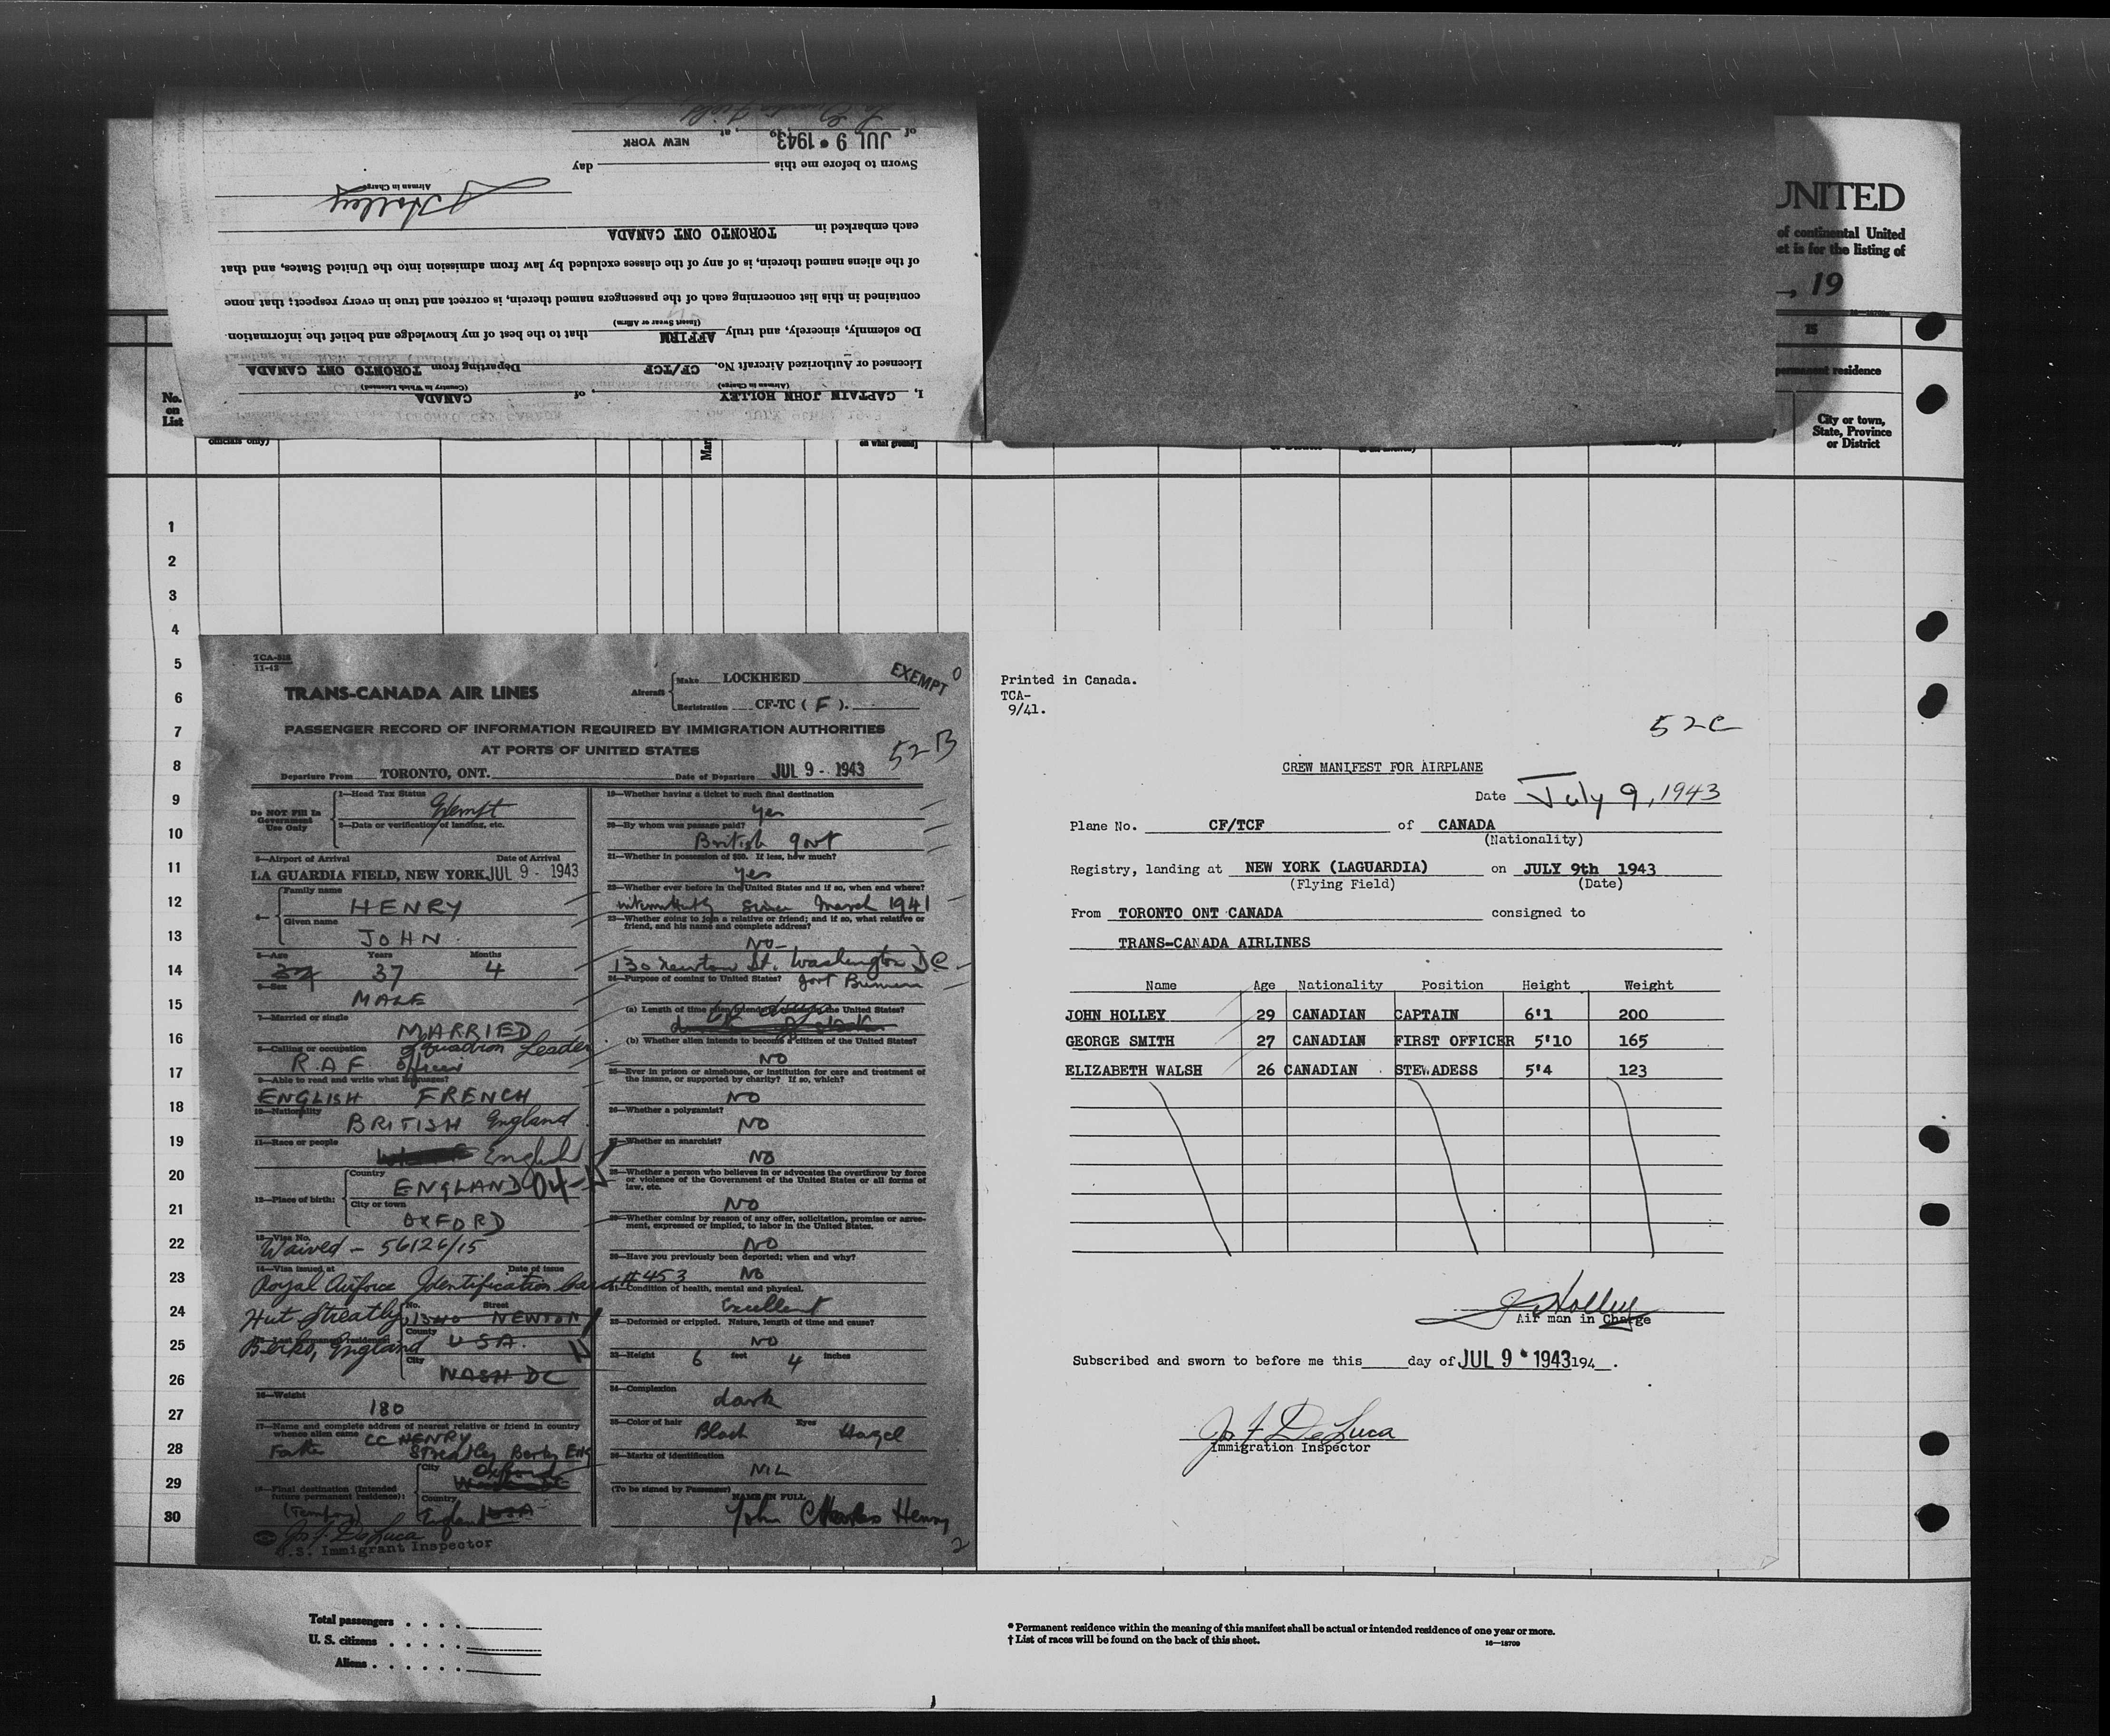 of
JUL 9 • 1943, 19 , at NEW YORK
Sworn to before me this day
Airman in Charge
J Holley
each embarked in TORONTO ONT CANADA
of the aliens named therein, is of any of the classes excluded by law from admission into the United States, and that
contained in this list concerning each of the passengers named therein, is correct and true in every respect; that none
(Insert Swear or Affirm)
Do solemnly, sincerely, and truly AFFIRM that to the best of my knowledge and belief the information
Licensed or Authorized Aircraft No. CF/TCF Departing from TORONTO ONT CANADA
(Airman in Charge) (Country in Which Licensed)
I, CAPTAIN JOHN HOLLEY, of CANADA
UNITED
of continental United
et is for the listing of
, 19
15
permanent residence
City or town,
State, Province
or District
No.
on
List
officials only)
Mar
on what ground]
1
2
3
4
5
6
7
8
9
10
11
12
13
14
15
16
17
18
19
20
21
22
23
24
25
26
27
28
29
30
11-42
TRANS-CANADA AIR LINES
Aircraft
Make LOCKHEED
Registration CF-TC ( F ).
EXEMPT 0
PASSENGER RECORD OF INFORMATION REQUIRED BY IMMIGRATION AUTHORITIES
AT PORTS OF UNITED STATES
52B
Departure From TORONTO, ONT. Date of Departure JUL 9 - 1943
Do NOT Fill In
Government
Use Only
1—Head Tax Status
Exempt
2—Data or verification of landing, etc.
3—Airport of Arrival Date of Arrival
LA GUARDIA FIELD, NEW YORK JUL 9 - 1943
4—
Family name
HENRY
Given name
JOHN
5—Age Years Months
37 4
6—Sex
MALE
7—Married or single
MARRIED
8—Calling or occupation Squadron Leader
R.A.F. Officer
9—Able to read and write what languages?
ENGLISH FRENCH
10—Nationality
BRITISH England
11—Race or people
English
12—Place of birth:
Country
ENGLAND
City or town
OXFORD
13—Visa No.
Waived - 56126/15
14—Visa issued at Date of issue
Royal Airforce Identification Card #453
Hut Streatly
No. Street
1340 NEWTON
County
USA.
Berks, England
City
WASH DC
16—Weight
180
17—Name and complete address of nearest relative or friend in country
whence alien came
CC HENRY
Father Streatley Berks Eng
18—Final destination (Intended
future permanent residence):
City
Oxford
Country
England USA
Jos F. De Luca
U.S. Immigrant Inspector
19—Whether having a ticket to such final destination
Yes
20—By whom was passage paid?
British govt
21—Whether in possession of $50. If less, how much?
yes
22—Whether ever before in the United States and if so, when and where?
intermittently since March 1941
23—Whether going to join a relative or friend; and if so, what relative or
friend, and his name and complete address?
NO-
130 Newton St. Washington DC
24—Purpose of coming to United States?
(a) Length of time alien intends to remain in the United States?
(b) Whether alien intends to become a citizen of the United States?
NO
25—Ever in prison or almshouse, or institution for care and treatment of
the insane, or supported by charity? If so, which?
NO
26—Whether a polygamist?
NO
27—Whether an anarchist?
NO
28—Whether a person who believes in or advocates the overthrow by force
or violence of the Government of the United States or all forms of
law, etc.
NO
29—Whether coming by reason of any offer, solicitation, promise or agree-
ment, expressed or implied, to labor in the United States.
NO
30—Have you previously been deported; when and why?
NO
31—Condition of health, mental and physical.
Excellent
32—Deformed or crippled. Nature, length of time and cause?
NO
33—Height 6 feet 4 inches
34—Complexion
dark
35—Color of hair Eyes
Black Hazel
36—Marks of identification
NIL
(To be signed by Passenger)
NAME IN FULL
John Charles Henry
2
Printed in Canada.
TCA-
9/41.
52C
CREW MANIFEST FOR AIRPLANE
Date July 9, 1943
Plane No. CF/TCF of CANADA
(Nationality)
Registry, landing at NEW YORK (LAGUARDIA) on JULY 9th 1943
(Flying Field) (Date)
From TORONTO ONT CANADA consigned to
TRANS-CANADA AIRLINES
Name Age Nationality Position Height Weight
JOHN HOLLEY 29 CANADIAN CAPTAIN 6'1 200
GEORGE SMITH 27 CANADIAN FIRST OFFICER 5'10 165
ELIZABETH WALSH 26 CANADIAN STEWADESS 5'4 123
J Holley
Air man in Charge
Subscribed and sworn to before me this day of JUL 9 • 1943 194 .
Jos F De Luca
Immigration Inspector
Total passengers . . . .
U. S. citizens . . . . .
Aliens . . . . . .
* Permanent residence within the meaning of this manifest shall be actual or intended residence of one year or more.
† List of races will be found on the back of this sheet.
16—18709